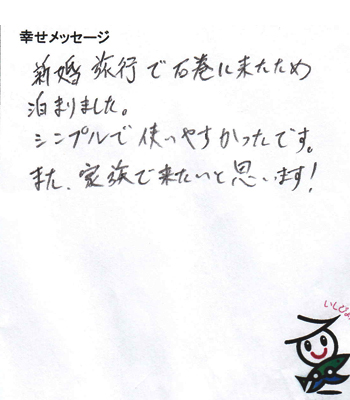 幸せメッセージ
新婚旅行で石巻に来たため
泊まりました。
シンプルで使いやすかったです。
また、家族で来たいと思います!